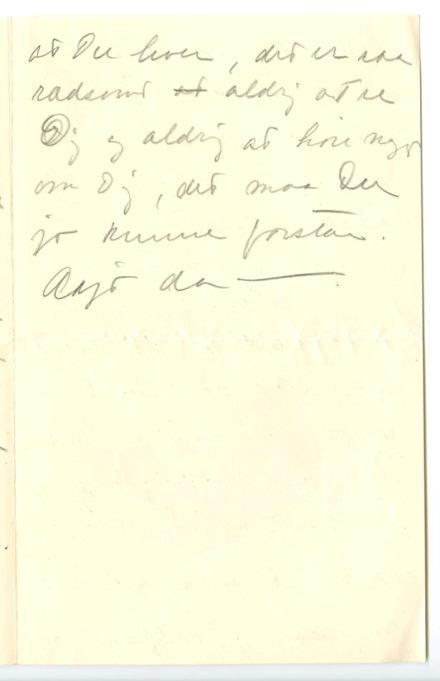 at Du lever, det er saa
radsomt at aldrig at se
Dig og aldrig at höre noget
om Dig, det maa Du
jo kunne forstaa.
Adjö da —